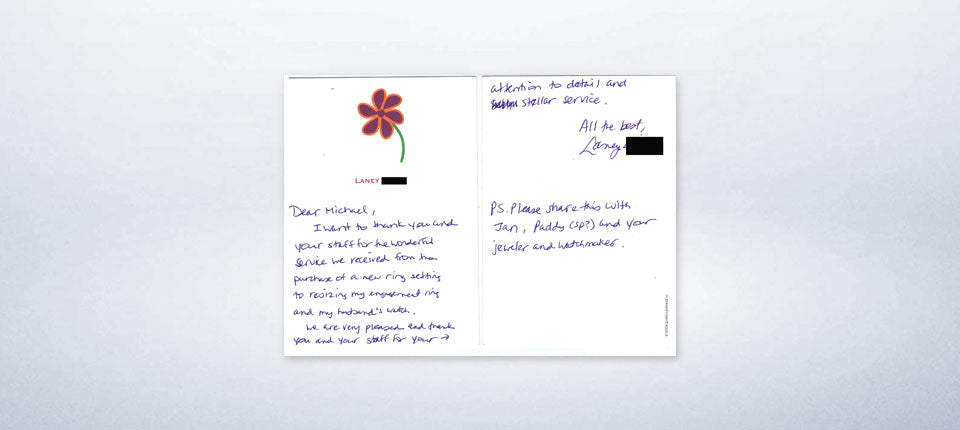 LANEY
Dear Michael,
I want to thank you and
your staff for the wonderful
service we received from the
purchase of a new ring setting
to resizing my engagement ring
and my husband's watch.
We are very pleased and thank
you and your staff for your →
attention to detail and
stellar service.
All the best,
Laney
PS. Please share this with
Jan, Paddy (sp?) and your
jeweler and watchmaker.